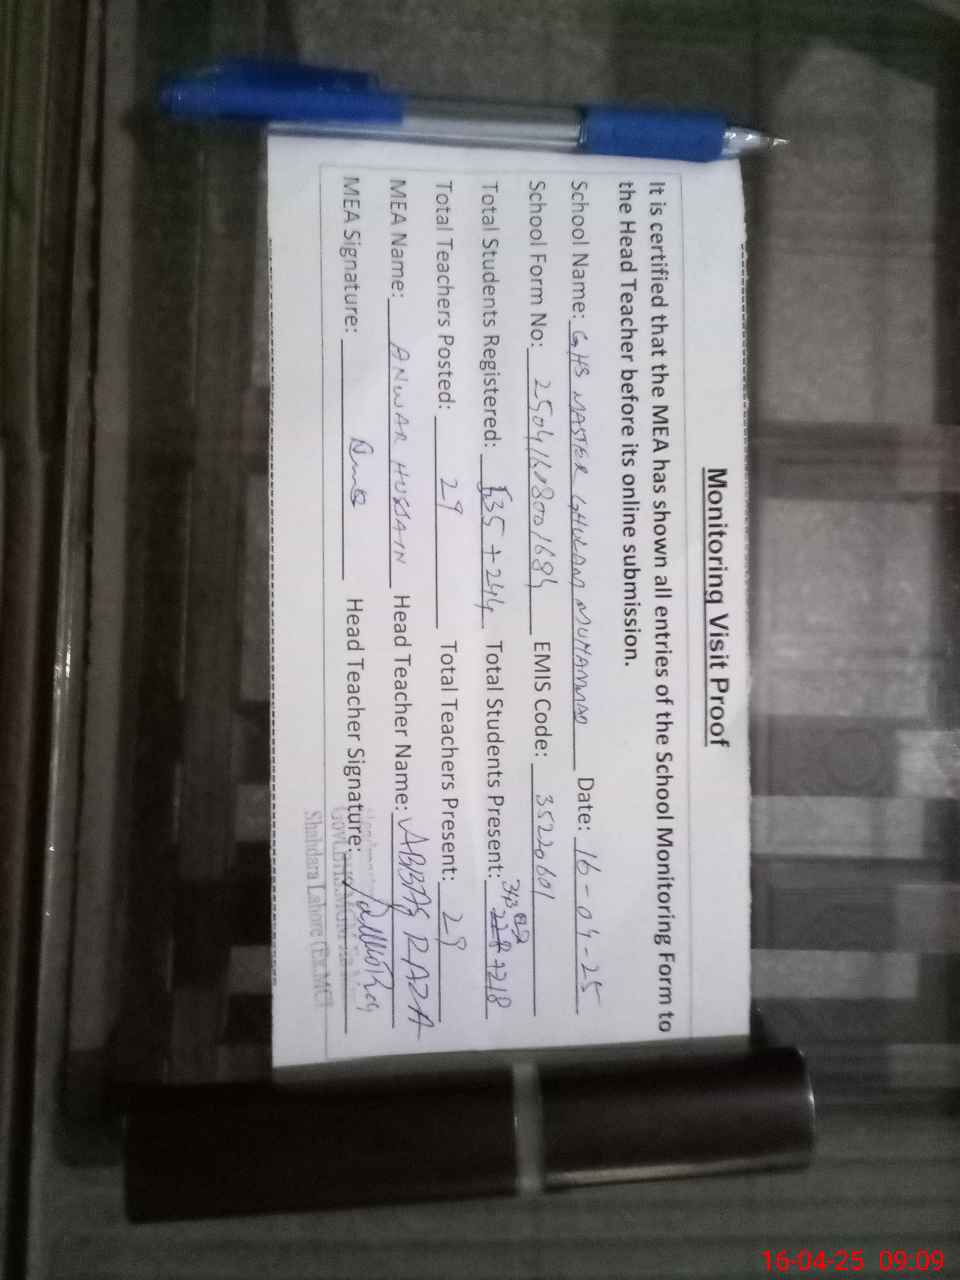 Monitoring Visit Proof
It is certified that the MEA has shown all entries of the School Monitoring Form to
the Head Teacher before its online submission.
School Name: GHS MASTER GHULAM MUHAMMAD Date: 16-04-25
School Form No: EMIS Code: 35220601
Total Students Registered: 535 + 244 Total Students Present: 313 +218
Total Teachers Posted: 29 Total Teachers Present: 29
MEA Name: ANWAR HUSSAIN Head Teacher Name: ABBAS RAZA
MEA Signature: Head Teacher Signature:
Shahdara Lahore (Ex.MCL)
16-04-25 09:09